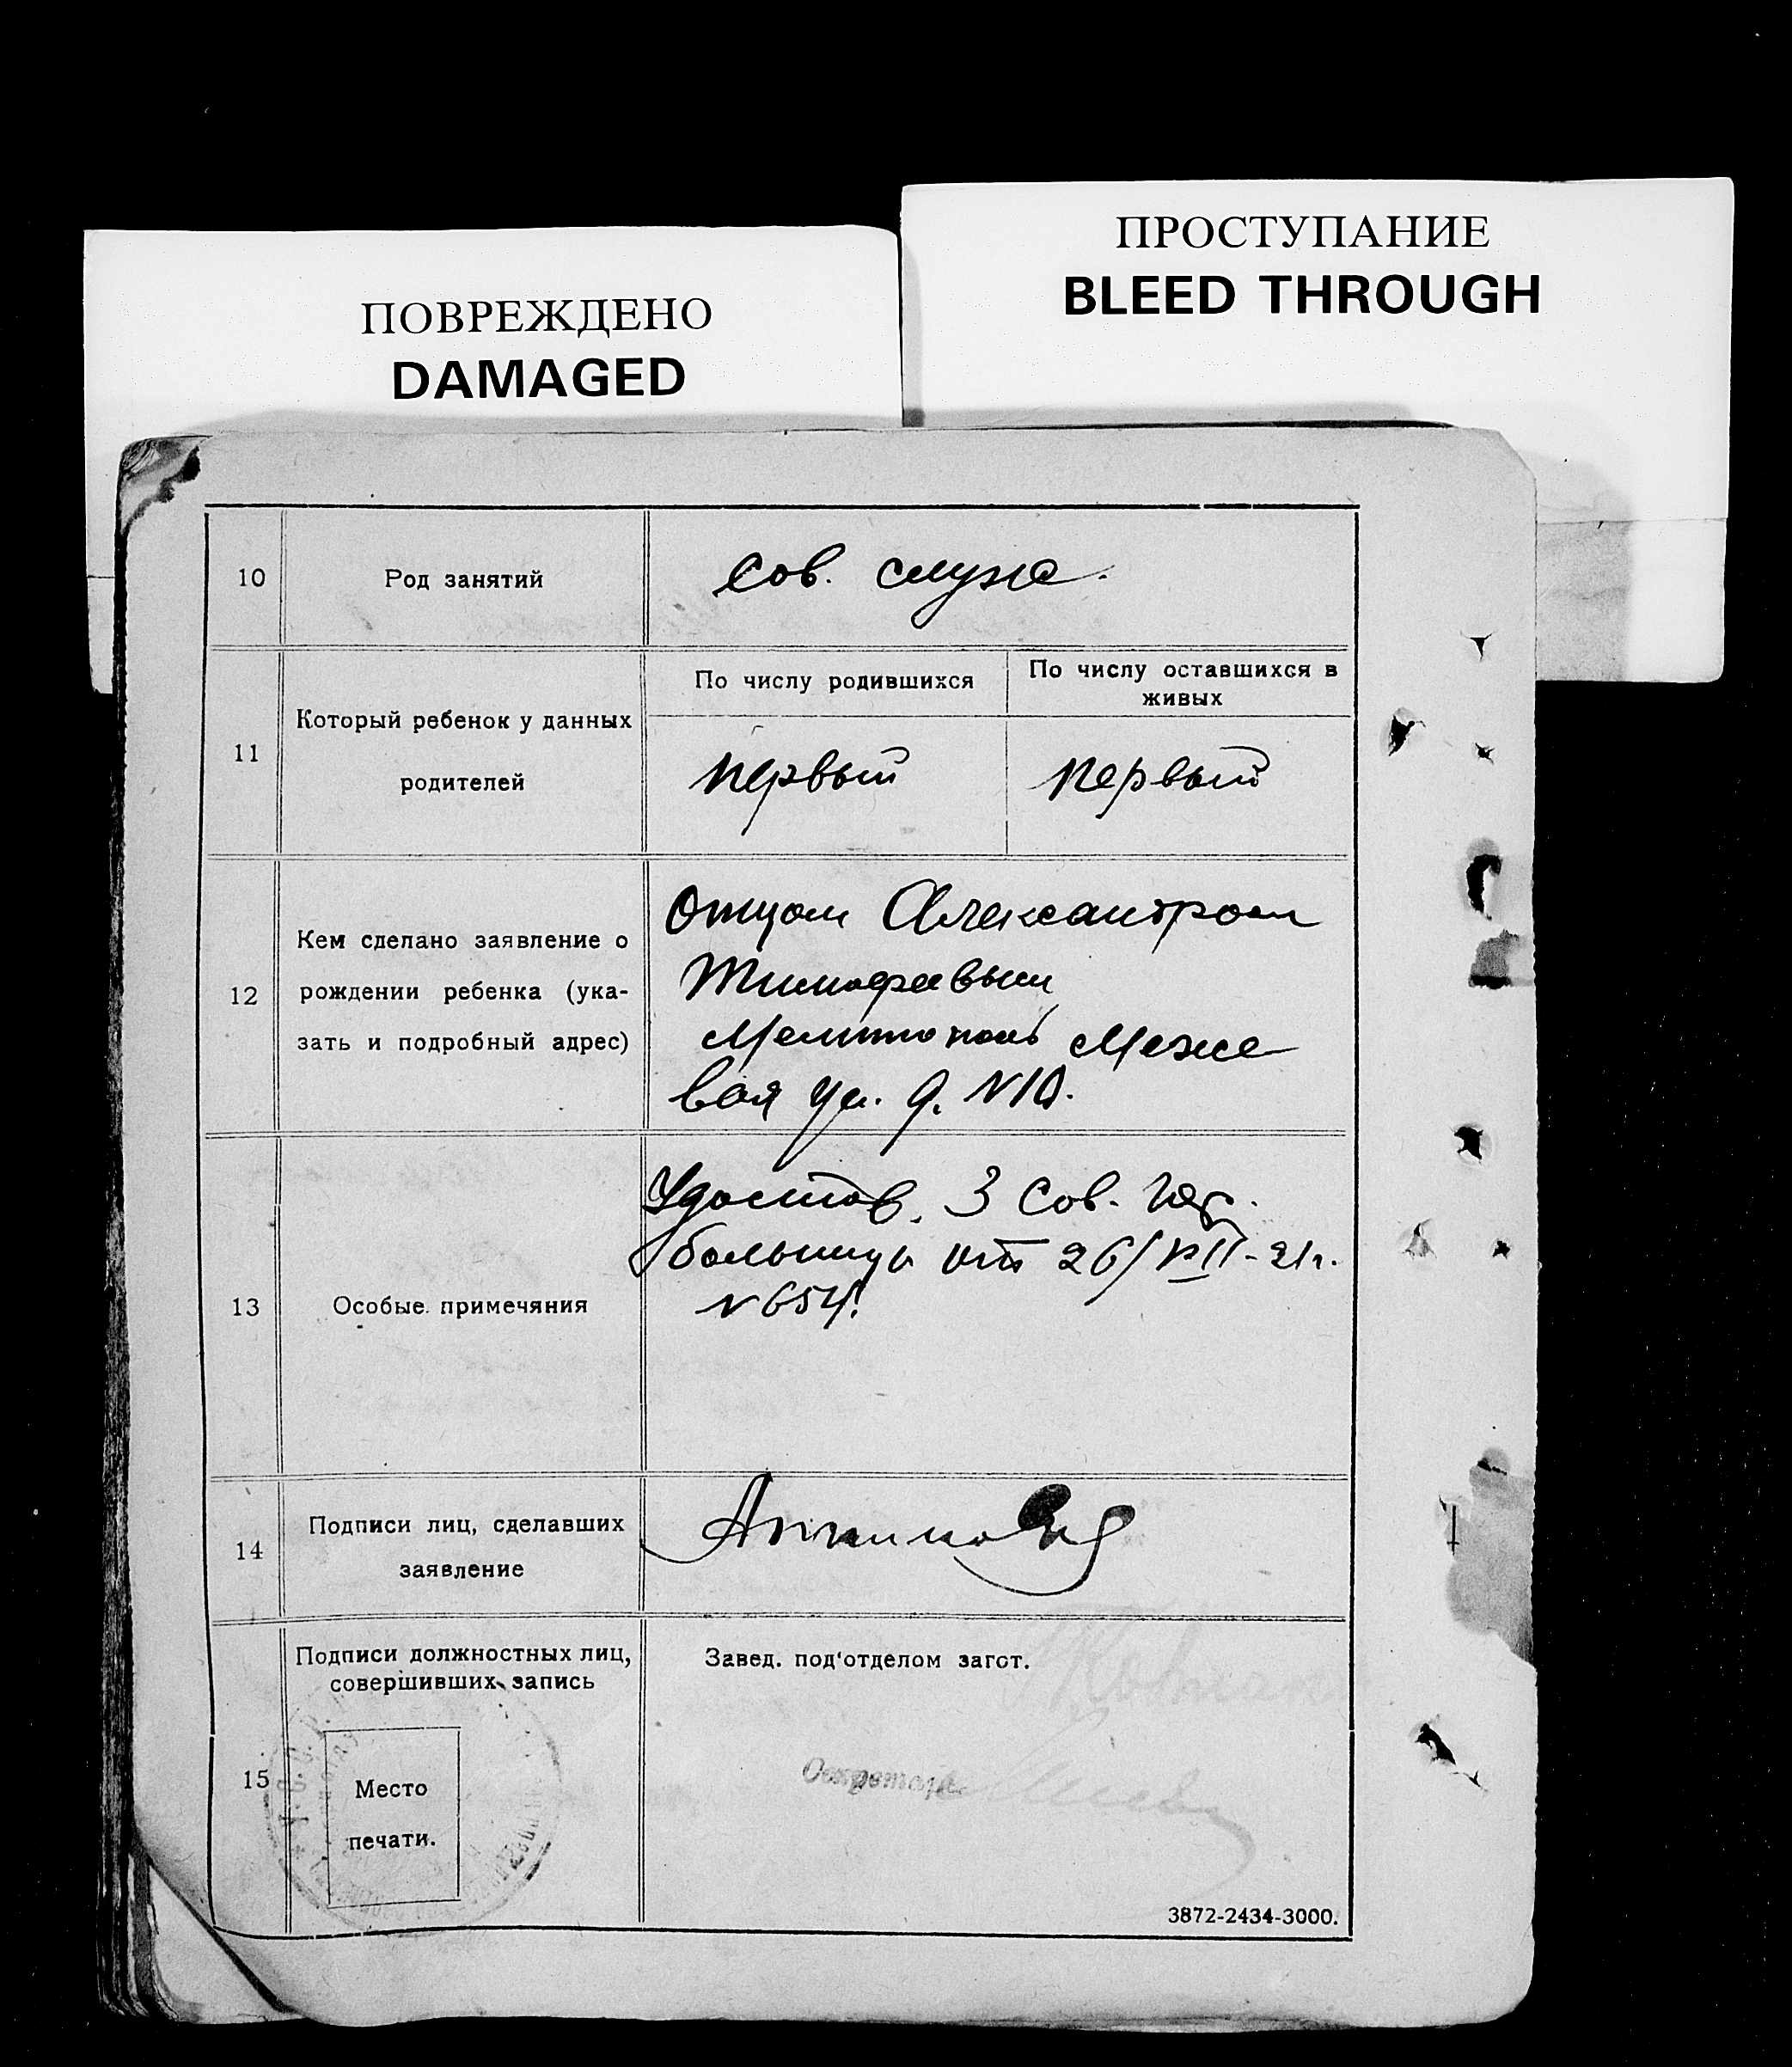 ПОВРЕЖДЕНО
DAMAGED
ПРОСТУПАНИЕ
BLEED THROUGH
10
Род занятий
Сов. служ.
11
Который ребенок у данных
родителей
По числу родившихся
По числу оставшихся в
живых
первый
первый
12
Кем сделано заявление о
рождении ребенка (ука-
зать и подробный адрес)
Отцом Александром
Тимофеевым
Мелитополь Меже
вая ул. д. N10.
13
Особые примечяния
Удостов. 3 Сов. 
больницы от 26/VIII-21г.
N654.
14
Подписи лиц, сделавших
заявление
15
Подписи должностных лиц,
совершивших запись
Место
печати.
Завед. под‘отделом загст.
Секретарь
3872-2434-3000.